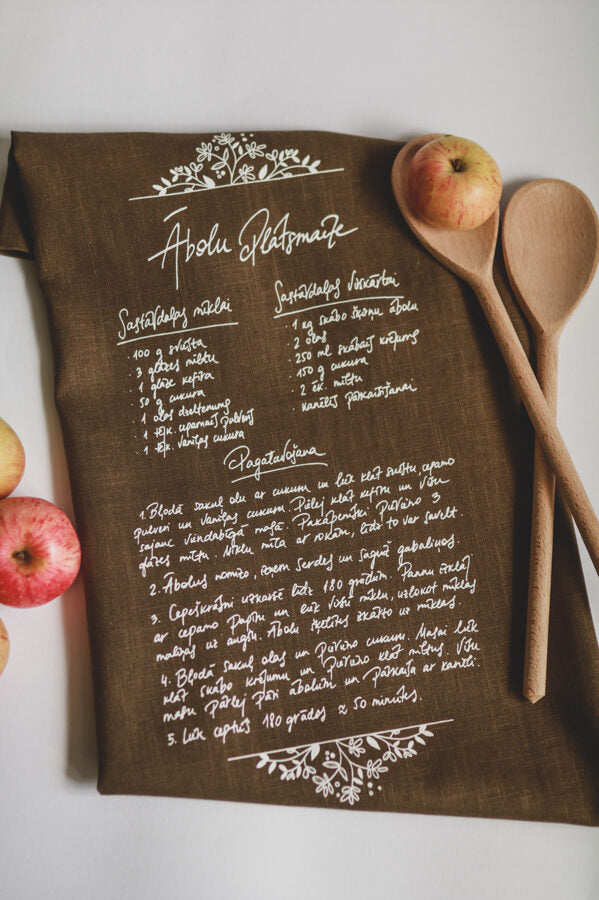 Ābolu Plātsmaize
Sastāvdaļas mīklai
100 g sviesta
3 glāzes miltu
1 glāze kefīra
50 g cukura
1 olas dzeltenums
1 tējk. cepamais pulveris
1 tējk. vaniļas cukura
Sastāvdaļas virskārtai
1 kg skābo šķirņu ābolu
2 olas
250 ml skābais krējums
150 g cukura
2 ēk. miltu
kanēlis pārkaisīšanai
Pagatavošana
1. Bļodā sakuļ olu ar cukuru un liek klāt sviestu, cepamo
pulveri un vaniļas cukuru. Pielej klāt kefīru un visu
sajauc viendabīgā masā. Pakāpeniski pievieno 3
glāzes miltu. Mīklu mīca ar rokām, līdz to var savelt.
2. Ābolus nomizo, izņem serdes un sagriež gabaliņos.
3. Cepeškrāsni uzkarsē līdz 180 grādiem. Pannu izklāj
ar cepamo papīru un liek visu mīklu, uzlokot mīklas
maliņas uz augšu. Ābolu šķēlītes izkārto uz mīklas.
4. Bļodā sakuļ olas un pievieno cukuru. Masai liek
klāt skābo krējumu un pievieno klāt miltus. Visu
masu pārlej pāri āboliem un pārkaisa ar kanēli.
5. Liek cepties 180 grādos ≈ 50 minūtes.